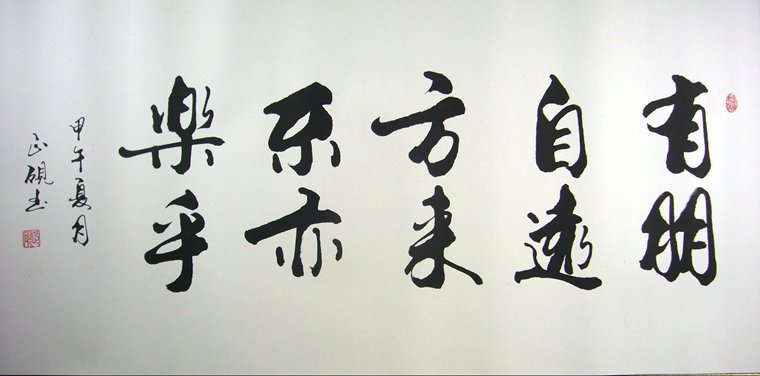 有朋
自遠
方来
不亦
樂乎
甲午夏月
正硯书